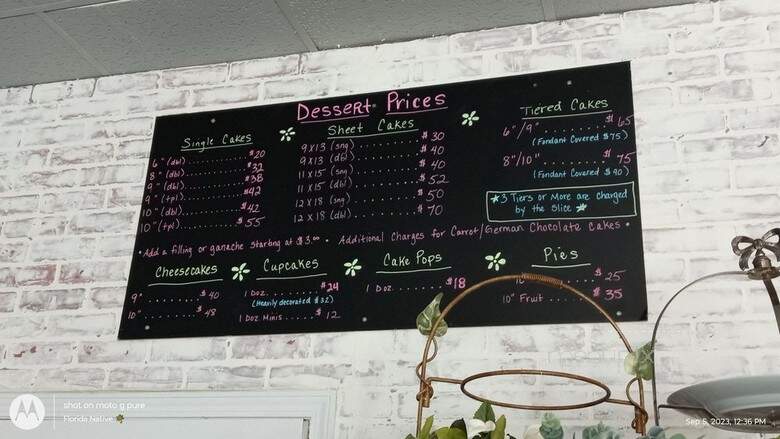 Dessert Prices
Single Cakes
6" (dbl) ........ $20
8" (dbl) ........ $32
9" (dbl) ........ $38
9" (tpl) ........ $42
10" (dbl) ........ $42
10" (tpl) ........ $55
Sheet Cakes
9x13 (sng) ........ $30
9x13 (dbl) ........ $40
11x15 (sng) ........ $40
11x15 (dbl) ........ $52
12x18 (sng) ........ $50
12x18 (dbl) ........ $70
Tiered Cakes
6"/9" ........ $65
(Fondant Covered $75)
8"/10" ........ $75
(Fondant Covered $90)
3 Tiers or More are charged
by the slice
• Add a filling or ganache starting at $3.00 • Additional Charges for Carrot/German Chocolate Cakes •
Cheesecakes
9" ........ $40
10" ........ $48
Cupcakes
1 Doz ........ $24
(Heavily decorated $32)
1 Doz Minis ..... $12
Cake Pops
1 Doz ........ $18
Pies
10" ........ $25
10" Fruit ........ $35
shot on moto g pure
Florida Native
Sep 5, 2023, 12:36 PM